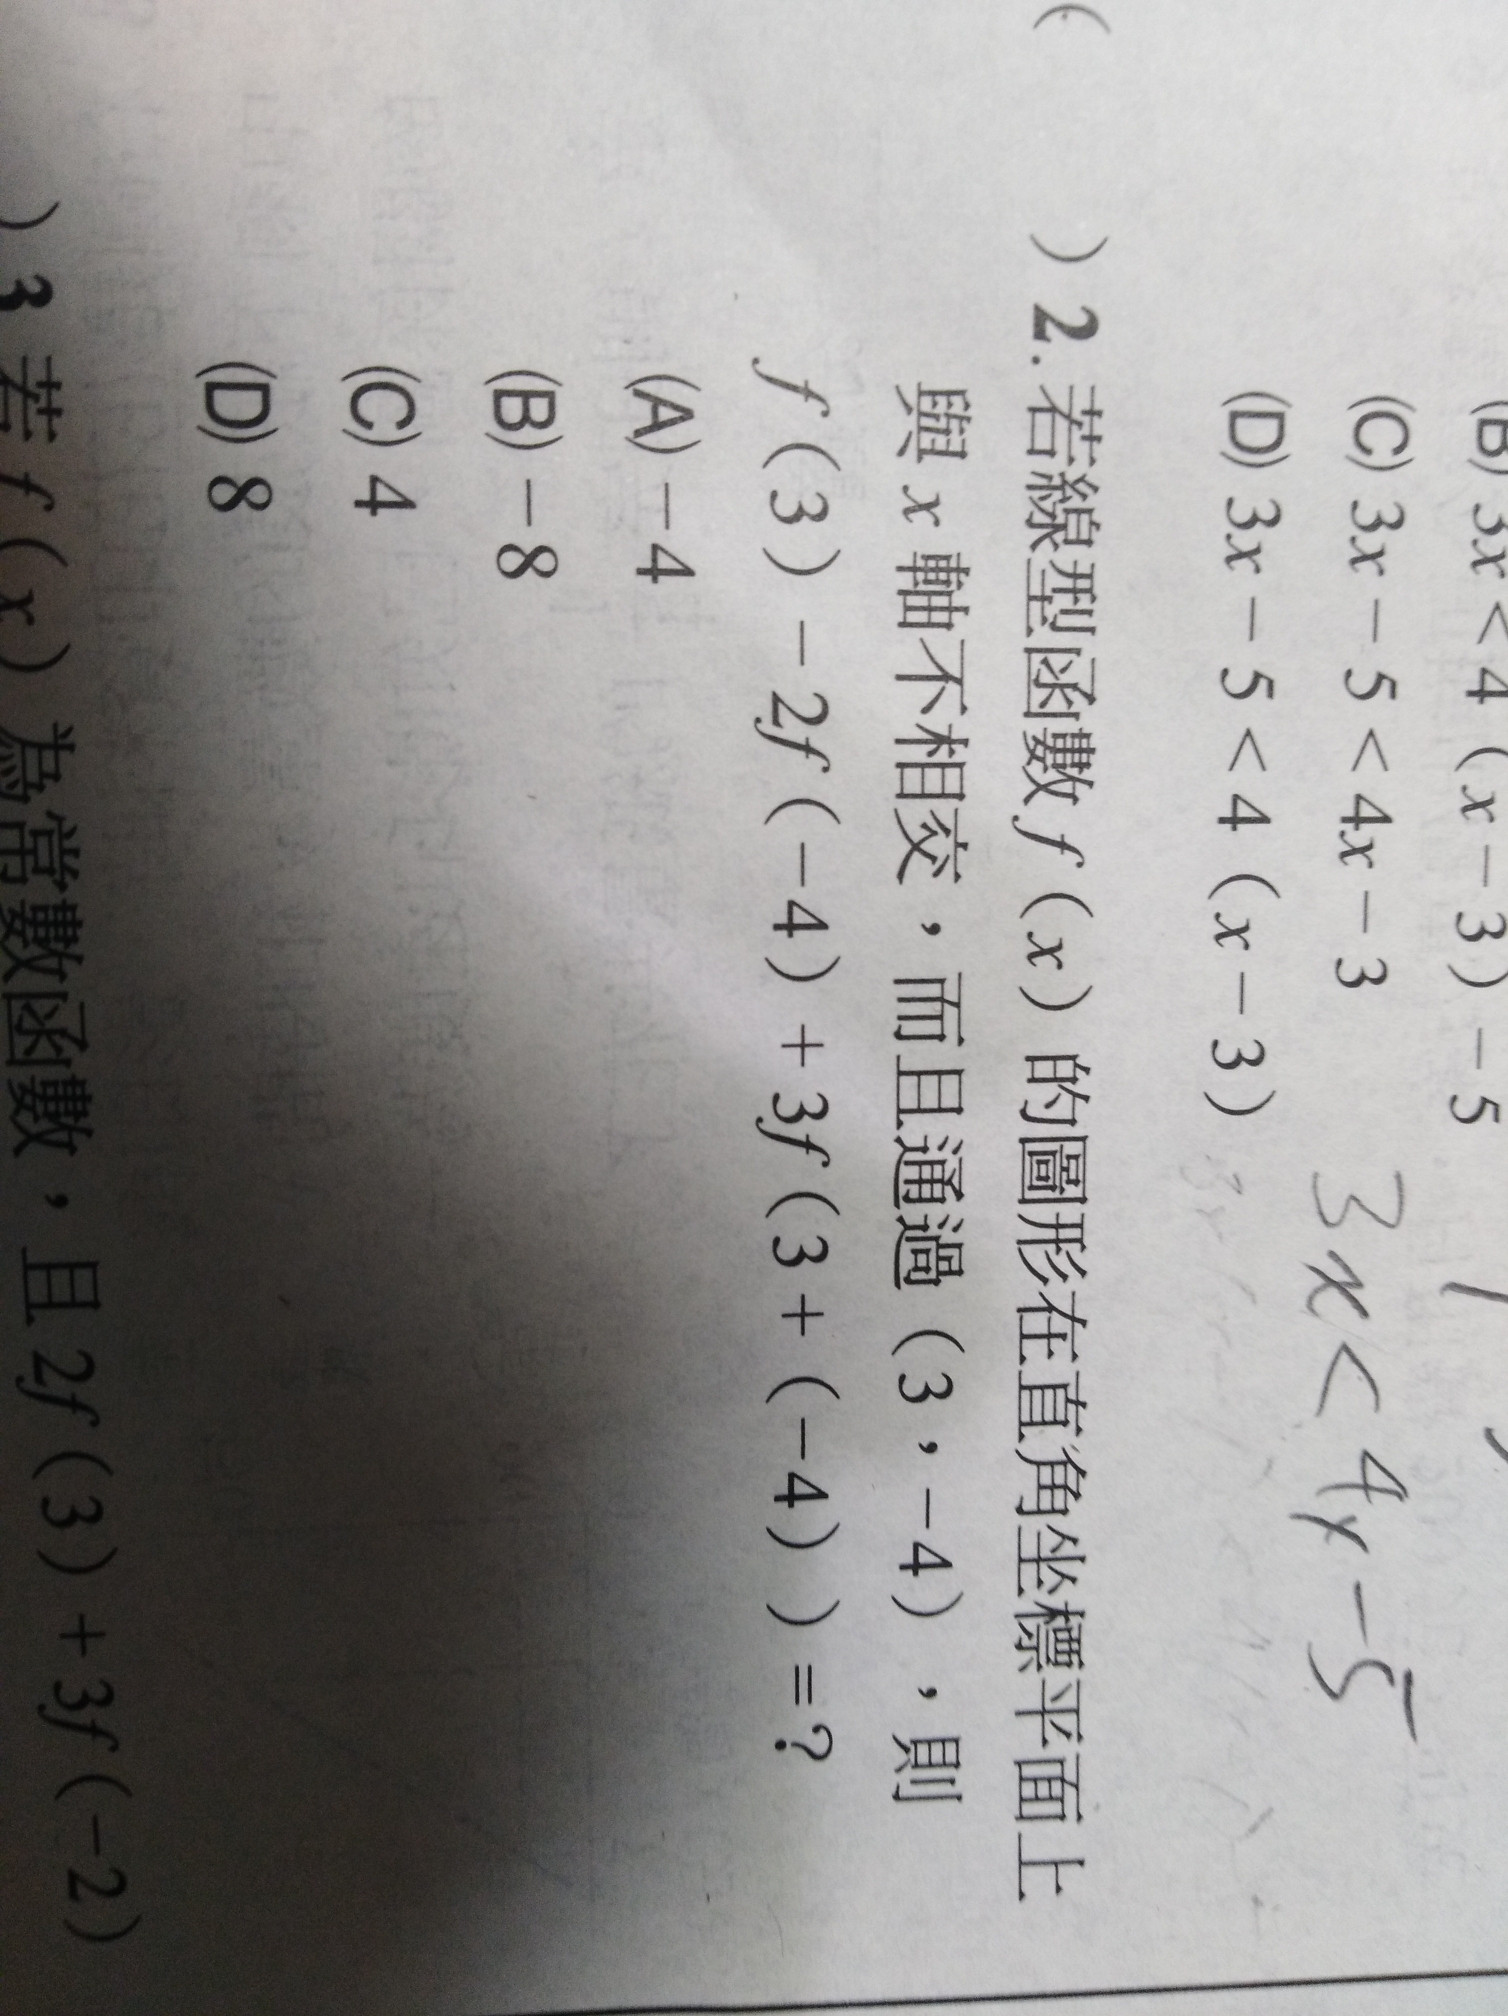 (B) 3x<4(x-3)-5
(C) 3x-5<4x-3
3x<4x-5
(D) 3x-5<4(x-3)
( )2.若線型函數f(x)的圖形在直角坐標平面上
與x軸不相交,而且通過(3,-4),則
f(3)-2f(-4)+3f(3+(-4))=?
(A)-4
(B)-8
(C)4
(D)8
)3 若f(x)為常數函數,且2f(3)+3f(-2)